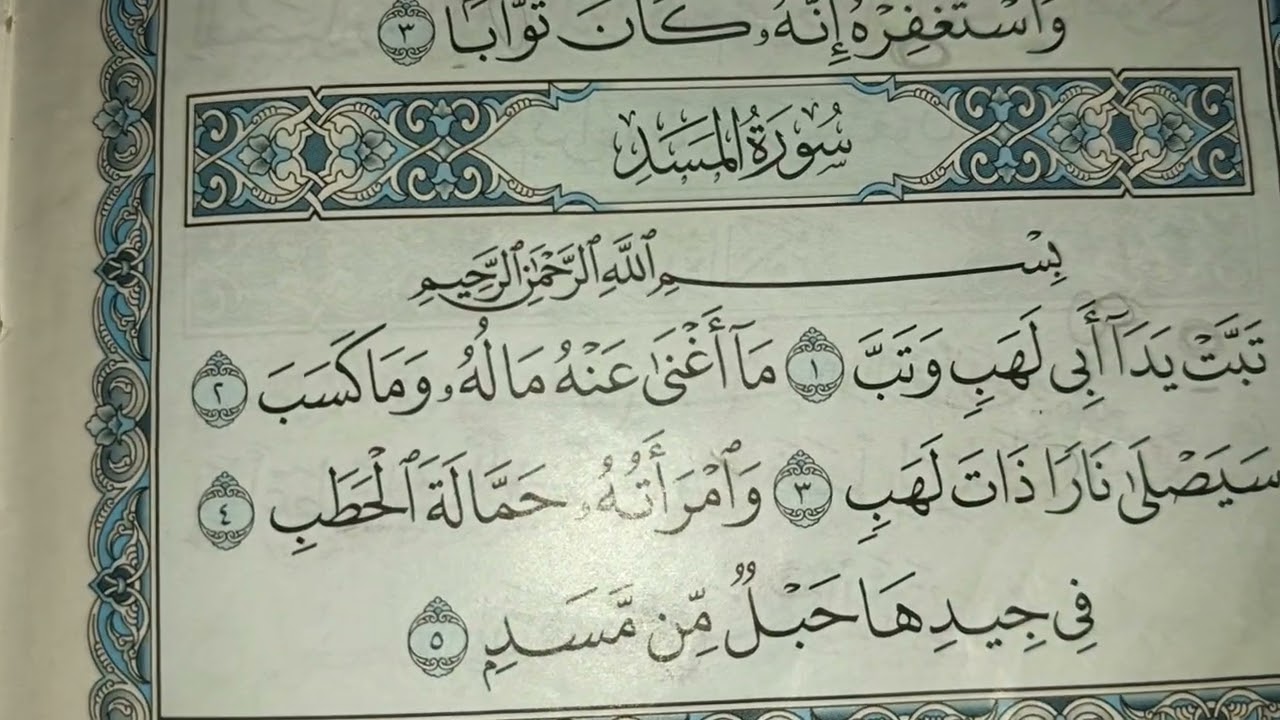 وَاسْتَغْفِرْهُ إِنَّهُۥ كَانَ تَوَّابًا ٣
سُورَةُ المَسَدِ
بِسْمِ ٱللَّهِ ٱلرَّحْمَٰنِ ٱلرَّحِيمِ
تَبَّتْ يَدَآ أَبِي لَهَبٍ وَتَبَّ ١ مَآ أَغْنَىٰ عَنْهُ مَالُهُۥ وَمَا كَسَبَ ٢
سَيَصْلَىٰ نَارًا ذَاتَ لَهَبٍ ٣ وَٱمْرَأَتُهُۥ حَمَّالَةَ ٱلْحَطَبِ ٤
فِي جِيدِهَا حَبْلٌ مِّن مَّسَدٍ ٥